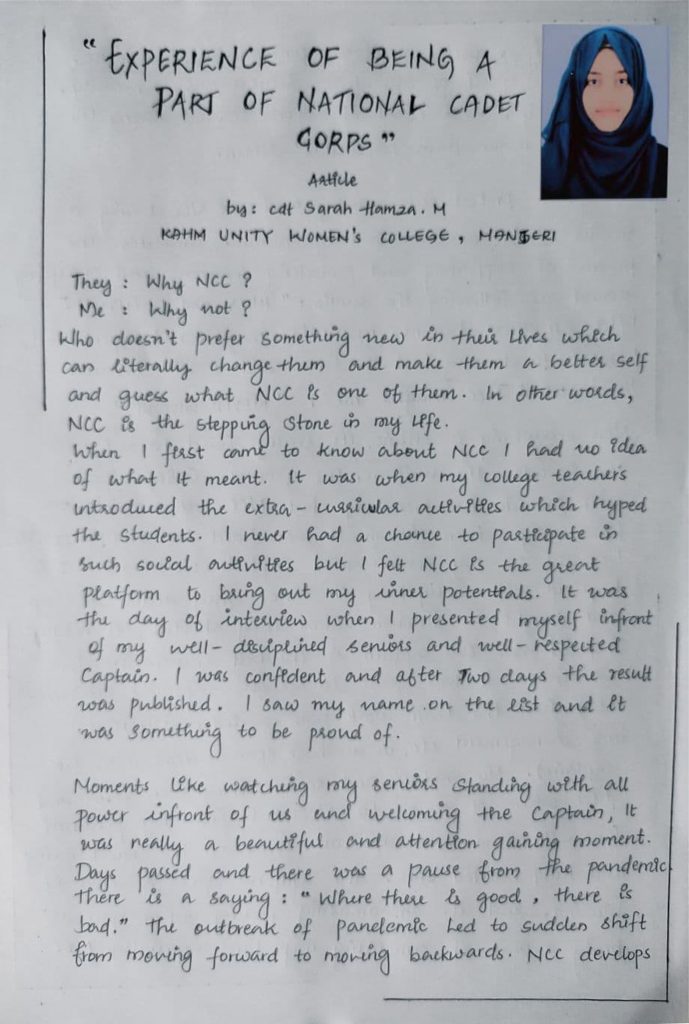 "EXPERIENCE OF BEING A
PART OF NATIONAL CADET
CORPS"
Article
by: cdt Sarah Hamza. M
KAHM UNITY WOMEN's COLLEGE, MANJERI
They : Why NCC ?
Me : Why not ?
Who doesn't prefer something new in their lives which
can literally change them and make them a better self
and guess what NCC is one of them. In other words,
NCC is the stepping stone in my life.
When I first came to know about NCC I had no idea
of what it meant. It was when my college teachers
introduced the extra-curricular activities which hyped
the students. I never had a chance to participate in
such social activities but I felt NCC is the great
platform to bring out my inner potentials. It was
the day of interview when I presented myself infront
of my well-disciplined seniors and well-respected
Captain. I was confident and after Two days the result
was published. I saw my name on the list and it
was something to be proud of.
Moments like watching my seniors standing with all
power infront of us and welcoming the Captain, It
was really a beautiful and attention gaining moment.
Days passed and there was a pause from the pandemic
There is a saying : "Where there is good, there is
bad." The outbreak of pandemic led to sudden shift
from moving forward to moving backwards. NCC develops